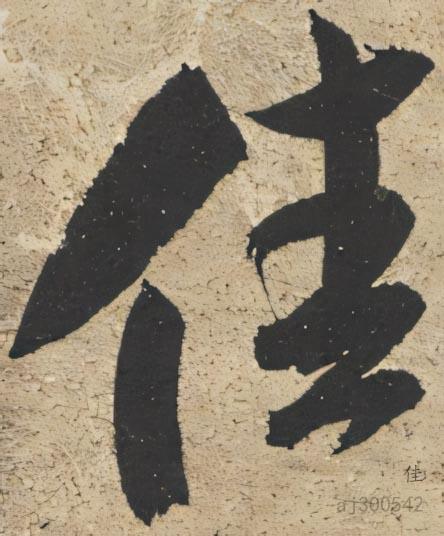 佳
佳
aj300542